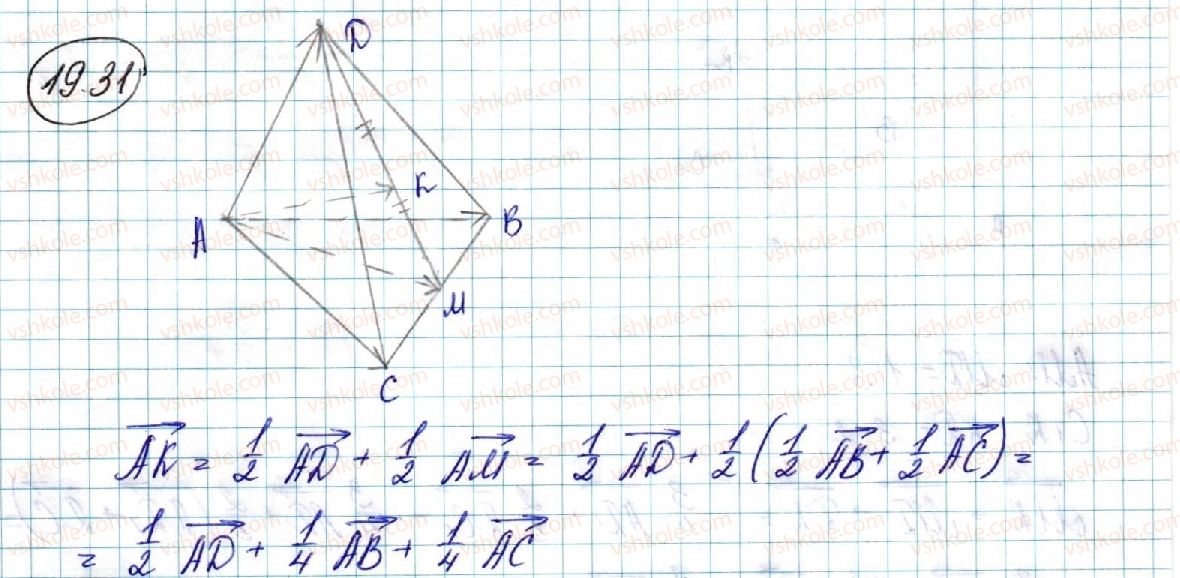 19.31
D
K
A
B
M
C
$\overrightarrow{AK} = \frac{1}{2} \overrightarrow{AD} + \frac{1}{2} \overrightarrow{AM} = \frac{1}{2} \overrightarrow{AD} + \frac{1}{2} (\frac{1}{2} \overrightarrow{AB} + \frac{1}{2} \overrightarrow{AC}) =$
$= \frac{1}{2} \overrightarrow{AD} + \frac{1}{4} \overrightarrow{AB} + \frac{1}{4} \overrightarrow{AC}$
vshkole.com